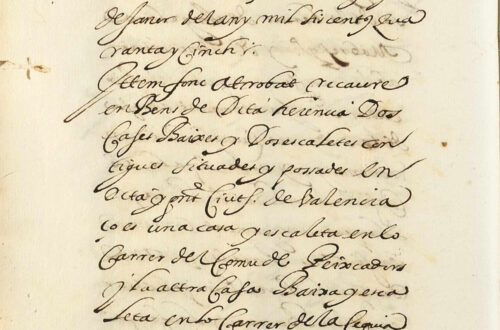 de Janer del any mil siscents qua
ranta y Cinch //.
Ittem fonc atrobat recaure
en Bens de Dita herencia Dos
Cases Baixes y Dos escaletes con
tigues situades y possades en
esta y pnt Ciutt. de Valencia
ço es una casa y escaleta en lo
Carrer del Comu de Peixcadors
y la altra Casa Baixa y esca
leta en lo Carrer de la sequia